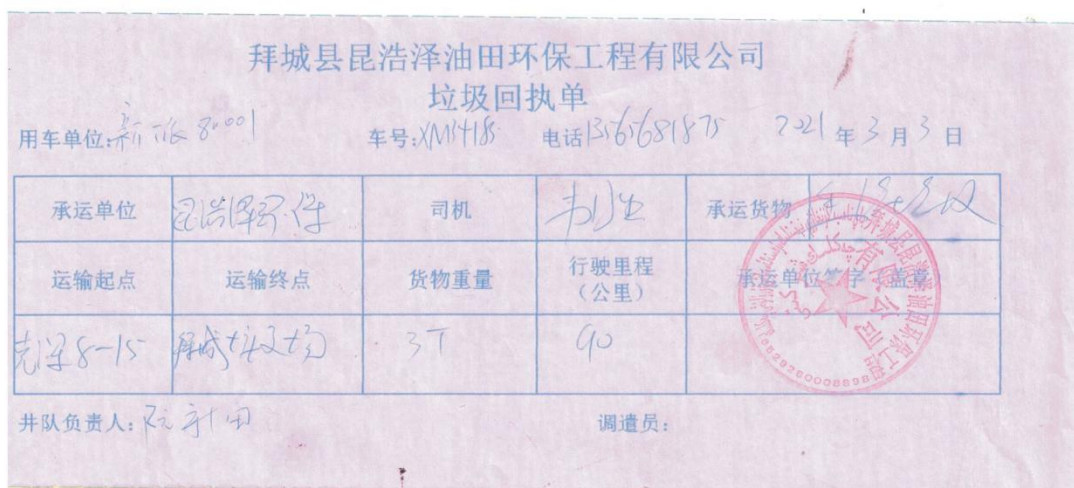 拜城县昆浩泽油田环保工程有限公司
垃圾回执单
用车单位: 80001 车号: 电话13565681875 2021 年 3 月 3 日
承运单位 昆浩泽环保 司机 承运货物 生活垃圾
运输起点 运输终点 货物重量 行驶里程
（公里） 承运单位签字（盖章）
克深8-15 拜城垃圾场 3T 90
井队负责人: 调遣员: